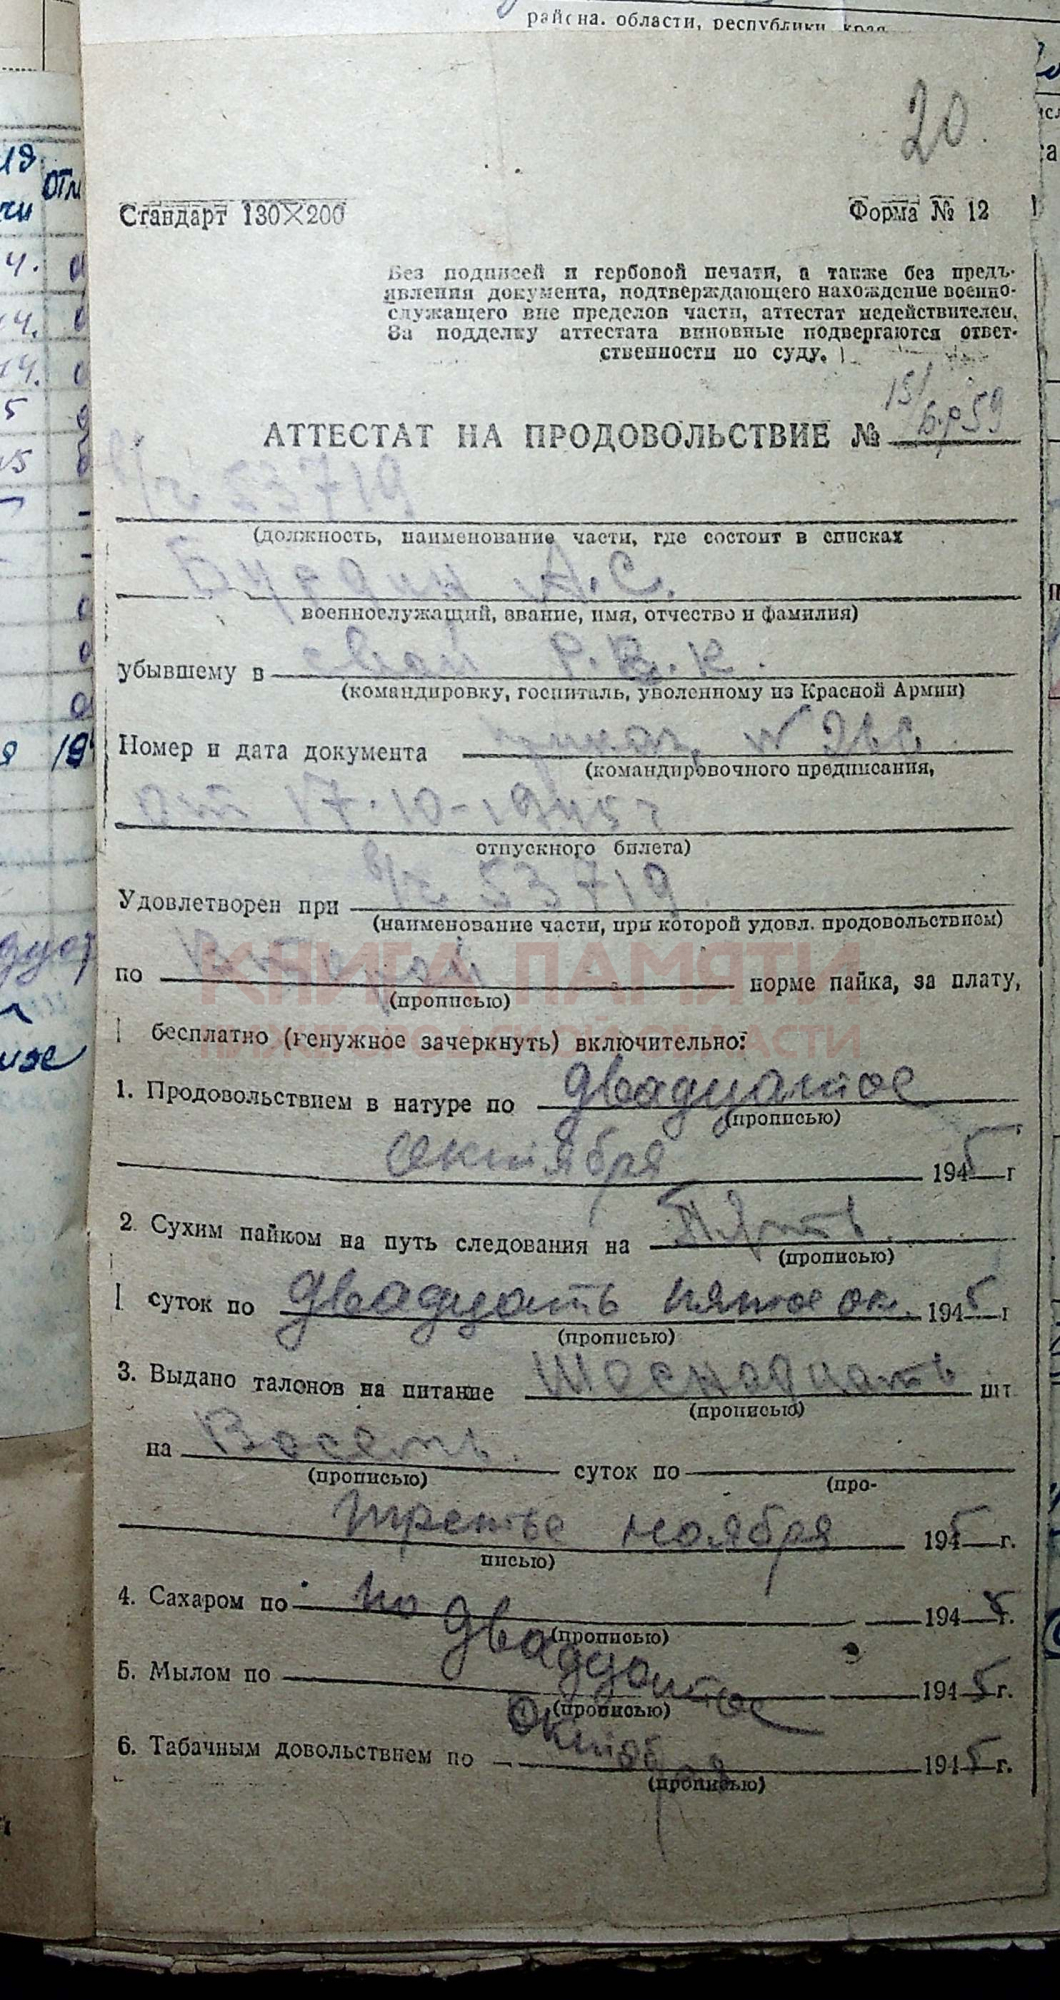 района. области, республики, края
20
Стандарт 130×200
Форма № 12
Без подписей и гербовой печати, а также без предъ-
явления документа, подтверждающего нахождение военно-
служащего вне пределов части, аттестат недействителен.
За подделку аттестата виновные подвергаются ответ-
ственности по суду.
АТТЕСТАТ НА ПРОДОВОЛЬСТВИЕ № 15/ 59
в/ч 53719
(должность, наименование части, где состоит в списках
А.С.
военнослужащий, звание, имя, отчество и фамилия)
убывшему в свой Р.В.К.
(командировку, госпиталь, уволенному из Красной Армии)
Номер и дата документа №
(командировочного предписания,
от 17.10-1945 г
отпускного билета)
Удовлетворен при в/ч 53719
(наименование части, при которой удовл. продовольствием)
по норме пайка, за плату,
(прописью)
КНИГА ПАМЯТИ
НИЖЕГОРОДСКОЙ ОБЛАСТИ
бесплатно (ненужное зачеркнуть) включительно:
1. Продовольствием в натуре по двадцатое
(прописью)
октября 1945 г
2. Сухим пайком на путь следования на Пять
(прописью)
суток по двадцать пятое ок. 1945 г
(прописью)
3. Выдано талонов на питание Шеснадцать шт
(прописью)
на Восемь суток по
(прописью) (про-
третье ноября 1945 г.
писью)
4. Сахаром по по двадцатое 1945 г.
(прописью)
5. Мылом по 1945 г.
(прописью)
октября
6. Табачным довольствием по 1945 г.
(прописью)